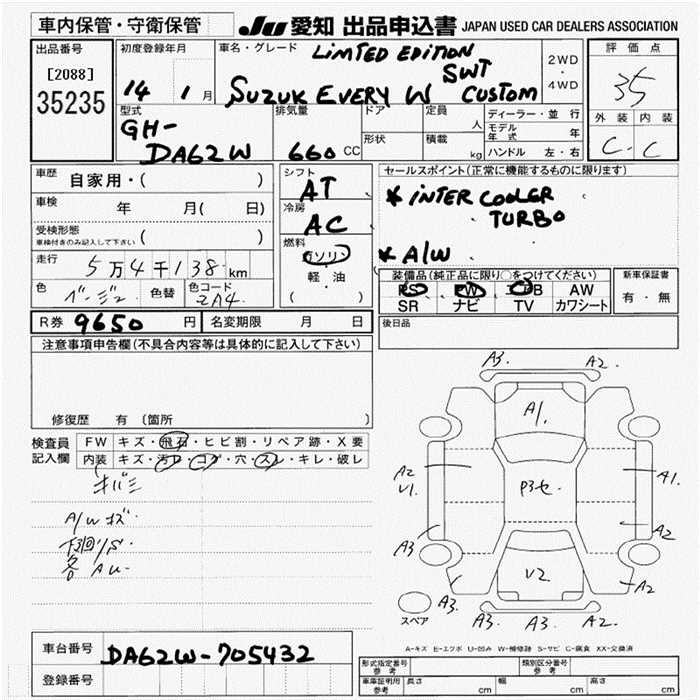 車内保管・守衛保管
JU 愛知 出品申込書 JAPAN USED CAR DEALERS ASSOCIATION
出品番号
[2088]
35235
初度登録年月
14 1 月
車名・グレード
LIMITED EDITION
SWT
SUZUK EVERY W CUSTOM
2WD
・
4WD
評価点
35
外装 内装
C - C
型式
GH-
DA62W
排気量
660 CC
ドア
形状
定員
人
積載
kg
ディーラー・並行
モデル年式 年
ハンドル 左・右
車歴 自家用・( )
車検 年 月( 日)
受検形態
車検付きのみ記入して下さい ( )
走行 5万4千138 km
色 ベージュ 色替 色コード 2A4
シフト
AT
冷房
AC
燃料
ガソリン
・
軽・油
( )
セールスポイント(正常に機能するものに限ります)
* INTER COOLER
TURBO
* A/W
装備品(純正品に限り○をつけてください)
PS PW AB AW
SR ナビ TV カワシート
新車保証書
有・無
R券 9650 円 名変期限 月 日
後日品
注意事項申告欄(不具合内容等は具体的に記入して下さい)
修復歴 有 〔箇所 〕
検査員
記入欄
FW キズ・飛石・ヒビ割・リペア跡・X要
内装 キズ・汚レ・コゲ・穴・スレ・キレ・破レ
キバミ
A/W キズ
下回りS
各 AU-
A3. A2.
A1.
A2
V1.
P3セ.
A1.
A3
A2
V2
A3. A2
スペア
A3. A3. A2.
A-キズ E-エクボ U-凹み W-補修跡 S-サビ C-腐食 XX-交換済
車台番号 DA62W-705432
登録番号
形式指定番号
参考
類別区分番号
参考
車庫証明用
参考
長さ cm 幅 cm 高さ cm